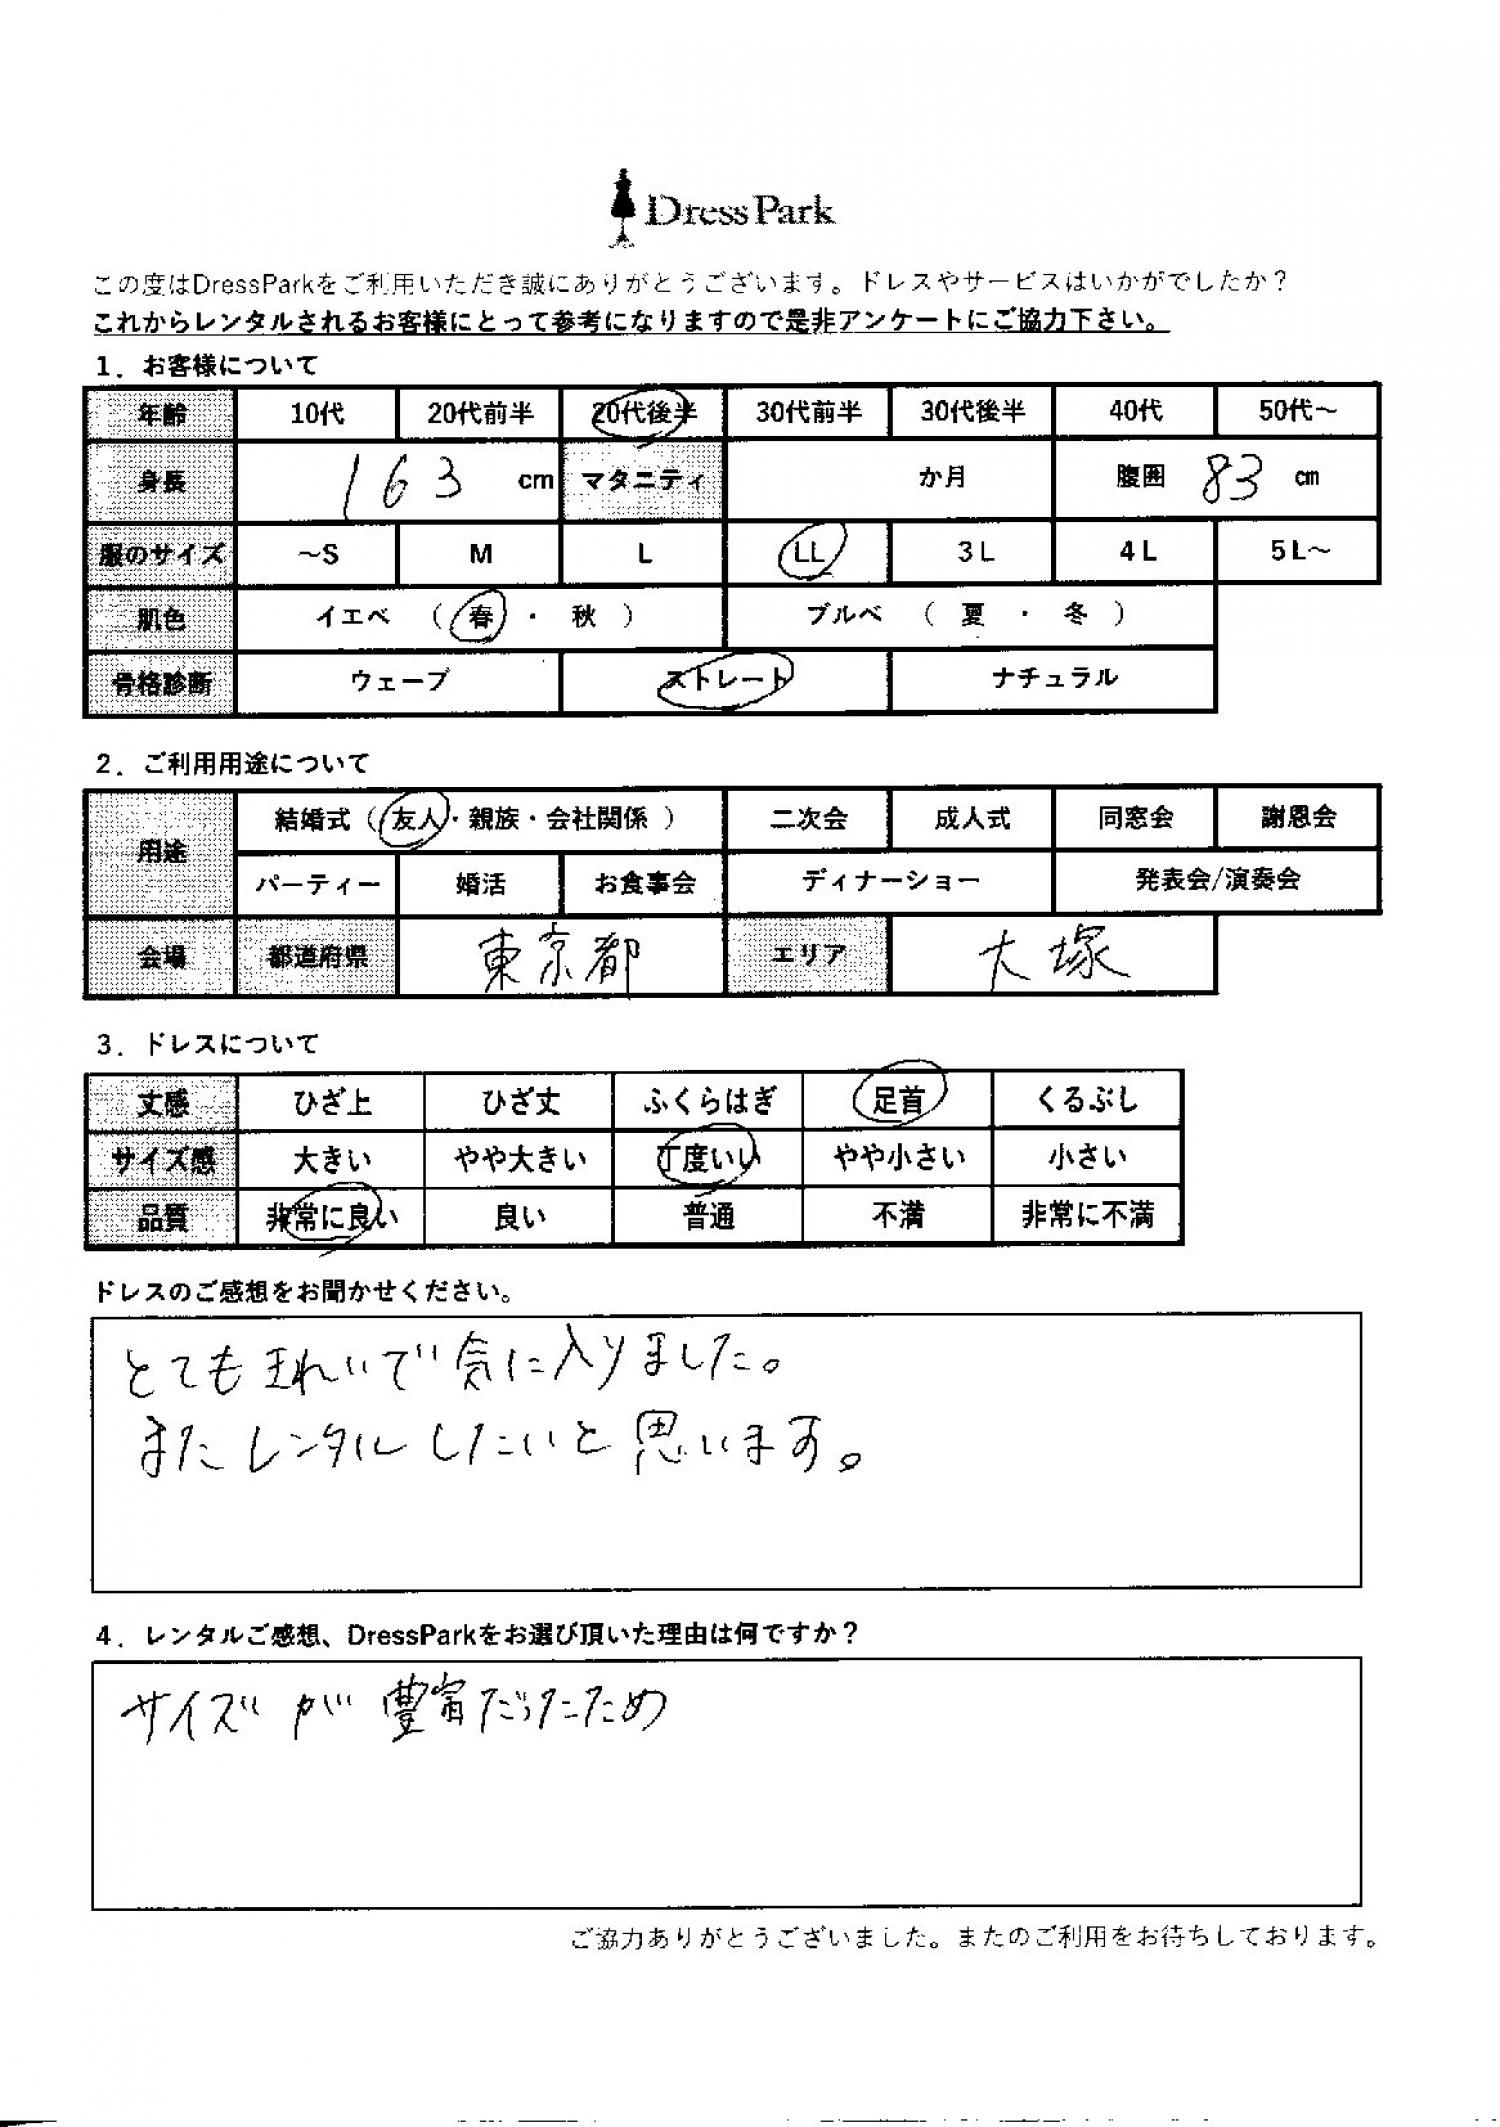 Dress Park
この度はDressParkをご利用いただき誠にありがとうございます。ドレスやサービスはいかがでしたか？
これからレンタルされるお客様にとって参考になりますので是非アンケートにご協力下さい。
１．お客様について
年齢 10代 20代前半 20代後半 30代前半 30代後半 40代 50代～
身長 163 cm マタニティ か月 腹囲 83 cm
服のサイズ ～S M L LL 3L 4L 5L～
肌色 イエベ （ 春 ・ 秋 ） ブルベ （ 夏 ・ 冬 ）
骨格診断 ウェーブ ストレート ナチュラル
２．ご利用用途について
用途 結婚式（ 友人・親族・会社関係 ） 二次会 成人式 同窓会 謝恩会
パーティー 婚活 お食事会 ディナーショー 発表会/演奏会
会場 都道府県 東京都 エリア 大塚
３．ドレスについて
丈感 ひざ上 ひざ丈 ふくらはぎ 足首 くるぶし
サイズ感 大きい やや大きい 丁度いい やや小さい 小さい
品質 非常に良い 良い 普通 不満 非常に不満
ドレスのご感想をお聞かせください。
とてもきれいで気に入りました。
またレンタルしたいと思います。
４．レンタルご感想、DressParkをお選び頂いた理由は何ですか？
サイズが豊富だったため
ご協力ありがとうございました。またのご利用をお待ちしております。